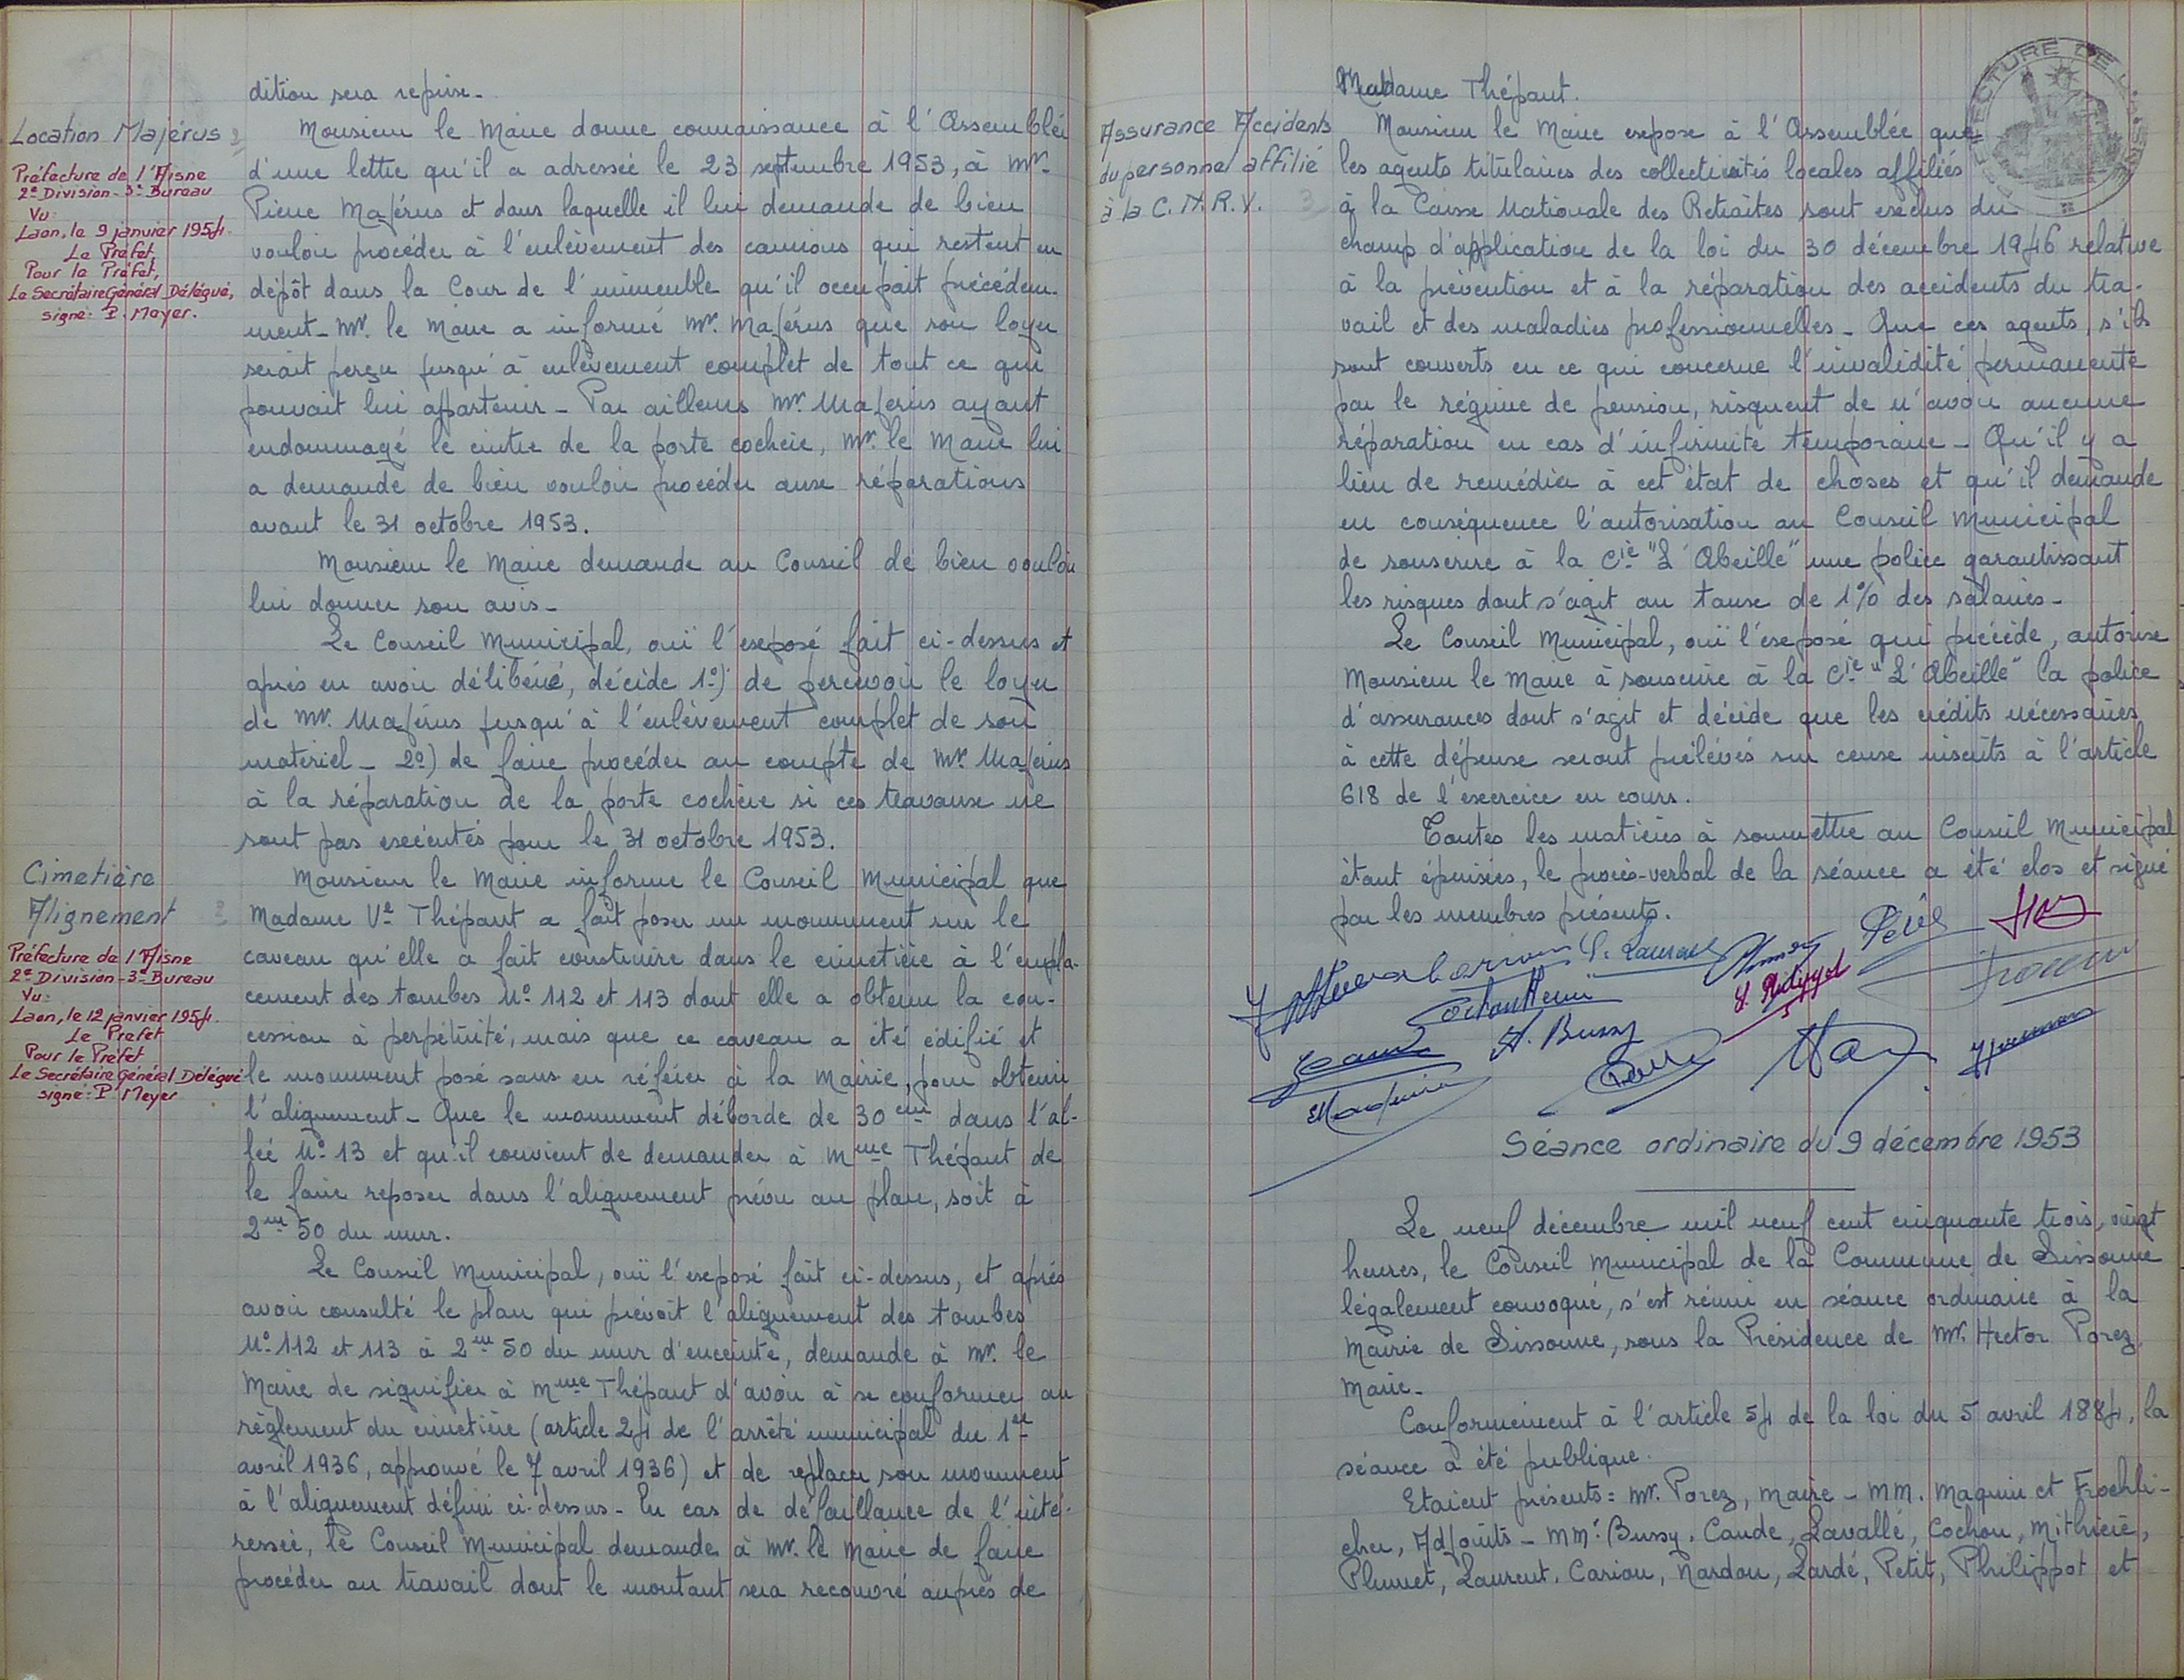 dition sera reprise_
Location Majérus
Préfecture de l'Aisne
2e Division - 3e Bureau
Vu:
Laon, le 9 janvier 1954.
Le Préfet,
Pour le Préfet,
Le Secrétaire Général Délégué,
signé: P. Meyer.
Monsieur le Maire donne connaissance à l'Assemblée
d'une lettre qu'il a adressée le 23 septembre 1953, à Mr.
Pierre Majérus et dans laquelle il lui demande de bien
vouloir procéder à l'enlèvement des camions qui restent en
dépôt dans la Cour de l'immeuble qu'il occupait précédem-
ment_ Mr. le Maire a informé Mr. Majérus que son loyer
serait perçu jusqu'à enlèvement complet de tout ce qui
pouvait lui appartenir_ Par ailleurs Mr. Majérus ayant
endommagé le cintre de la porte cochère, Mr. le Maire lui
a demandé de bien vouloir procéder aux réparations
avant le 31 octobre 1953.
Monsieur le Maire demande au Conseil de bien vouloir
lui donner son avis_
Le Conseil Municipal, ouï l'exposé fait ci-dessus et
après en avoir délibéré, décide 1°) de percevoir le loyer
de Mr. Majérus jusqu'à l'enlèvement complet de son
matériel_ 2°) de faire procéder au compte de Mr. Majérus
à la réparation de la porte cochère si ces travaux ne
sont pas exécutés pour le 31 octobre 1953.
Cimetière
Alignement
Préfecture de l'Aisne
2e Division - 3e Bureau
Vu:
Laon, le 12 janvier 1954.
Le Préfet
Pour le Préfet
Le Secrétaire Général Délégué
signé: P. Meyer
Monsieur le Maire informe le Conseil Municipal que
Madame Ve Thépaut a fait poser un monument sur le
caveau qu'elle a fait construire dans le cimetière à l'empla-
cement des tombes N° 112 et 113 dont elle a obtenu la con-
cession à perpétuité, mais que ce caveau a été édifié et
le monument posé sans en référer à la Mairie, pour obtenir
l'alignement_ Que le monument déborde de 30 cm dans l'al-
lée N° 13 et qu'il convient de demander à Mme Thépaut de
le faire reposer dans l'alignement prévu au plan, soit à
2m 50 du mur.
Le Conseil Municipal, ouï l'exposé fait ci-dessus, et après
avoir consulté le plan qui prévoit l'alignement des tombes
N° 112 et 113 à 2m 50 du mur d'enceinte, demande à Mr. le
Maire de signifier à Mme Thépaut d'avoir à se conformer au
règlement du cimetière (article 24 de l'arrêté municipal du 1er
avril 1936, approuvé le 7 avril 1936) et de replacer son monument
à l'alignement défini ci-dessus_ En cas de défaillance de l'inté-
ressée, le Conseil Municipal demande à Mr. le Maire de faire
procéder au travail dont le montant sera recouvré auprès de
Madame Thépaut.
Assurance Accidents
du personnel affilié
à la C.N.R.V.
Monsieur le Maire expose à l'Assemblée que
les agents titulaires des collectivités locales affiliés
à la Caisse Nationale des Retraites sont exclus du
champ d'application de la loi du 30 décembre 1946 relative
à la prévention et à la réparation des accidents du tra-
vail et des maladies professionnelles_ Que ces agents, s'ils
sont couverts en ce qui concerne l'invalidité permanente
par le régime de pension, risquent de n'avoir aucune
réparation en cas d'infirmité temporaire_ Qu'il y a
lieu de remédier à cet état de choses et qu'il demande
en conséquence l'autorisation au Conseil Municipal
de souscrire à la Cie "L'Abeille" une police garantissant
les risques dont s'agit au taux de 1% des salaires_
Le Conseil Municipal, ouï l'exposé qui précède, autorise
Monsieur le Maire à souscrire à la Cie "L'Abeille" la police
d'assurances dont s'agit et décide que les crédits nécessaires
à cette dépense seront prélevés sur ceux inscrits à l'article
618 de l'exercice en cours.
Toutes les matières à soumettre au Conseil Municipal
étant épuisées, le procès-verbal de la séance a été clos et signé
par les membres présents.
A. Bussy
Séance ordinaire du 9 décembre 1953
Le neuf décembre mil neuf cent cinquante trois, vingt
heures, le Conseil Municipal de la Commune de Sissonne
légalement convoqué, s'est réuni en séance ordinaire à la
Mairie de Sissonne, sous la Présidence de Mr. Hector Porez,
Maire_
Conformément à l'article 54 de la loi du 5 avril 1884, la
séance a été publique.
Etaient présents: Mr. Porez, Maire_ MM. Maquin et Froehli-
cher, Adjoints_ MMr. Bussy, Caude, Lavallé, Cochon, Mithière,
Plumet, Laurent, Cariou, Nardou, Lardé, Petit, Philippot et